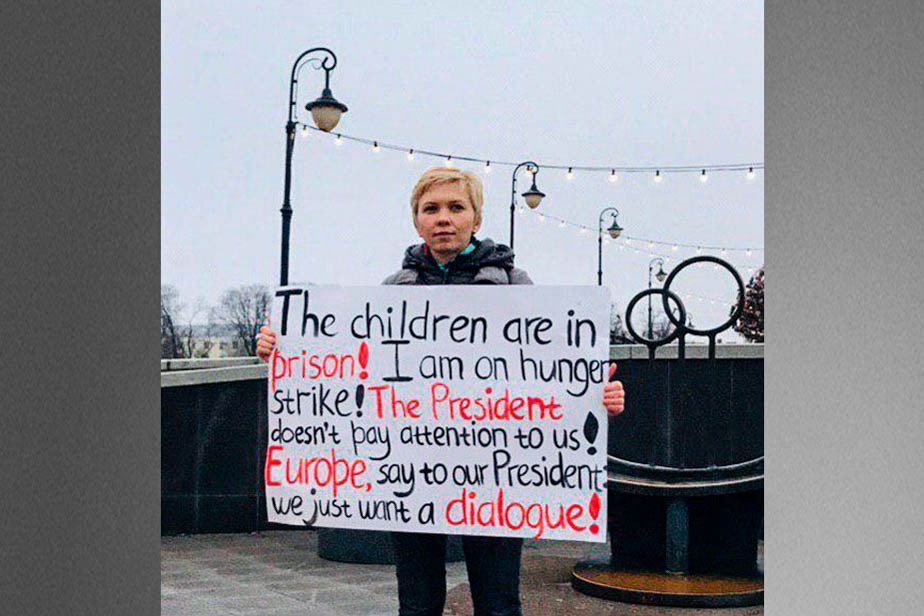 The children are in
prison! I am on hunger
strike! The President
doesn't pay attention to us!
Europe, say to our President:
we just want a dialogue!